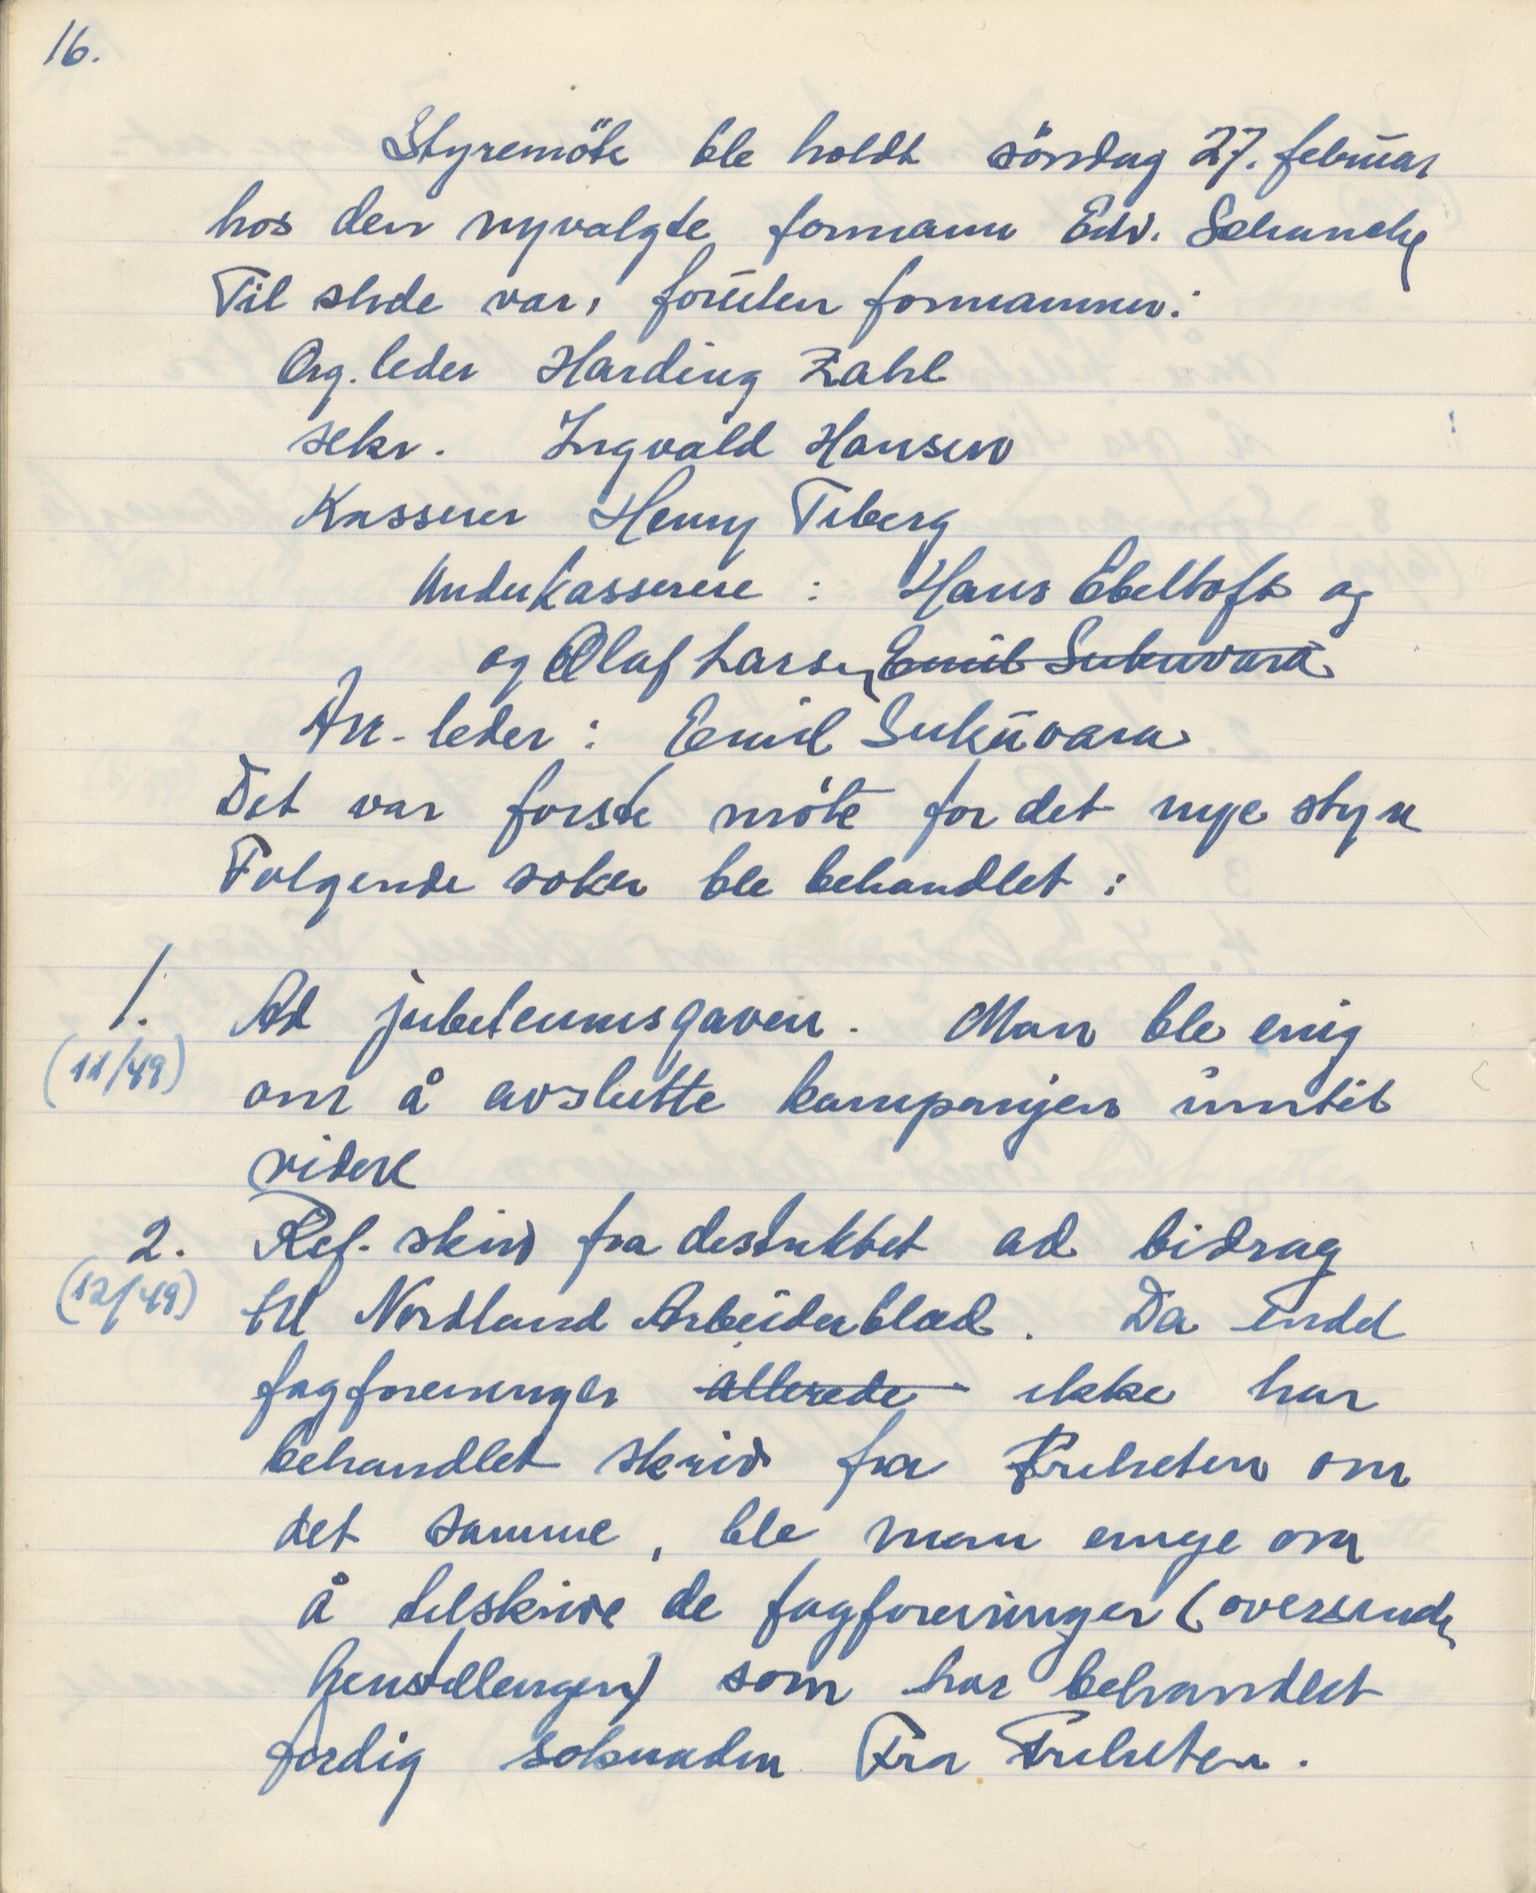 16.
Styremöte ble holdt söndag 27. februar
hos den nyvalgte formann Edv. Schanche
Til stede var, foruten formannen:
Org. leder Harding Zahl
sekr. Ingvald Hansen
Kasserer Henny Tiberg
Underkasserere : Hans Ebeltoft og
og Olaf Larsen Emil Sukuvara
Arr. leder : Emil Sukuvara
Det var første möte for det nye styre
Følgende saker ble behandlet :
1. Ad jubeleumsgaven. Man ble enig
(11/49) om å avslutte kampanjen inntil
videre
2. Ref. skriv fra destriktet ad bidrag
(12/49) til Nordland Arbeiderblad. Da endel
fagforeninger allerede ikke har
behandlet skriv fra Friheten om
det samme, ble man enige om
å tilskrive de fagforeninger (oversende
henstillingen) som har behandlet
ferdig søknaden Fra Friheten.